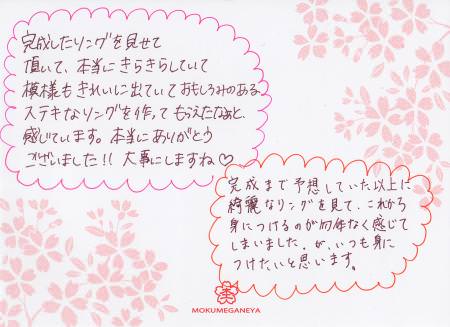 完成したリングを見せて
頂いて、本当にきらきらしていて
模様もきれいに出ていておもしろみのある
ステキなリングを作ってもらえたなぁと、
感じています。本当にありがとう
ございました!! 大事にしますね♡
完成まで予想していた以上に
綺麗なリングを見て、これから
身につけるのが勿体なく感じて
しまいました。が、いつも身に
つけたいと思います。
MOKUMEGANEYA